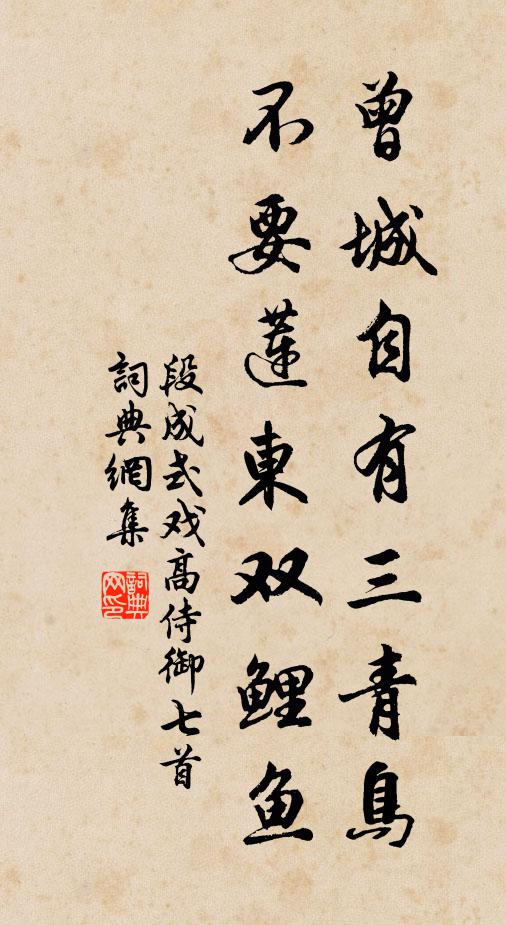 曾城自有三青鳥
不要蓮東双鲤鱼
段成式戏高侍御七首
詞典網集
詞典网印